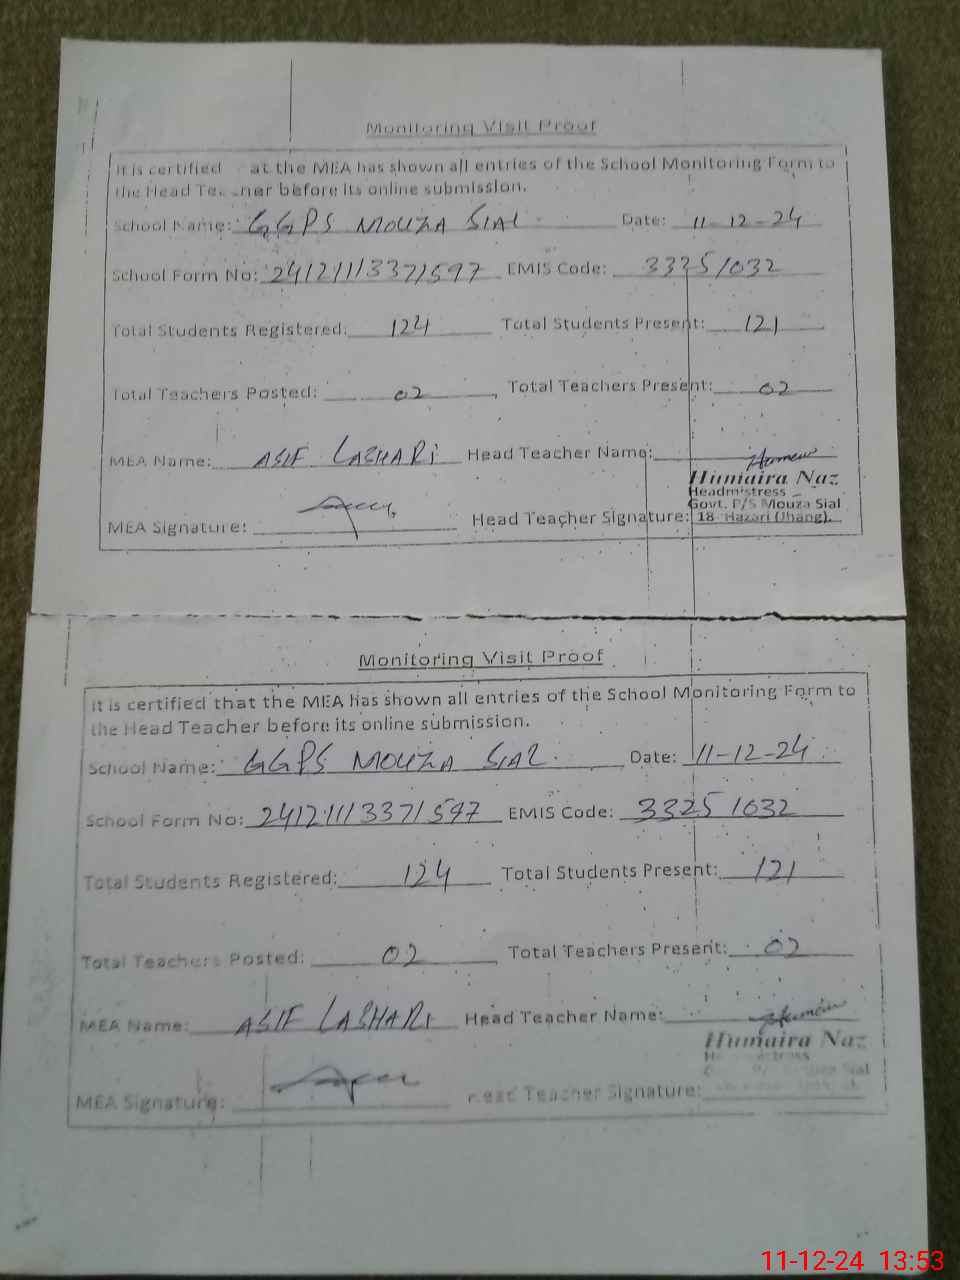 Monitoring Visit Proof
It is certified at the MEA has shown all entries of the School Monitoring Form to
the Head Teacher before its online submission.
School Name: GGPS MOUZA SIAL Date: 11-12-24
School Form No: 24121113371597 EMIS Code: 33251032
Total Students Registered: 124 Total Students Present: 121
Total Teachers Posted: 02 Total Teachers Present: 02
MEA Name: ASIF LASHARI Head Teacher Name:
Humaira Naz
Headmistress
Govt. P/S Mouza Sial
MEA Signature: Head Teacher Signature: 18-Hazari (Jhang).
Monitoring Visit Proof
It is certified that the MEA has shown all entries of the School Monitoring Form to
the Head Teacher before its online submission.
School Name: GGPS MOUZA SIAL Date: 11-12-24
School Form No: 24121113371597 EMIS Code: 33251032
Total Students Registered: 124 Total Students Present: 121
Total Teachers Posted: 02 Total Teachers Present: 02
MEA Name: ASIF LASHARI Head Teacher Name:
Humaira Naz
Sial
MEA Signature: Head Teacher Signature:
11-12-24 13:53